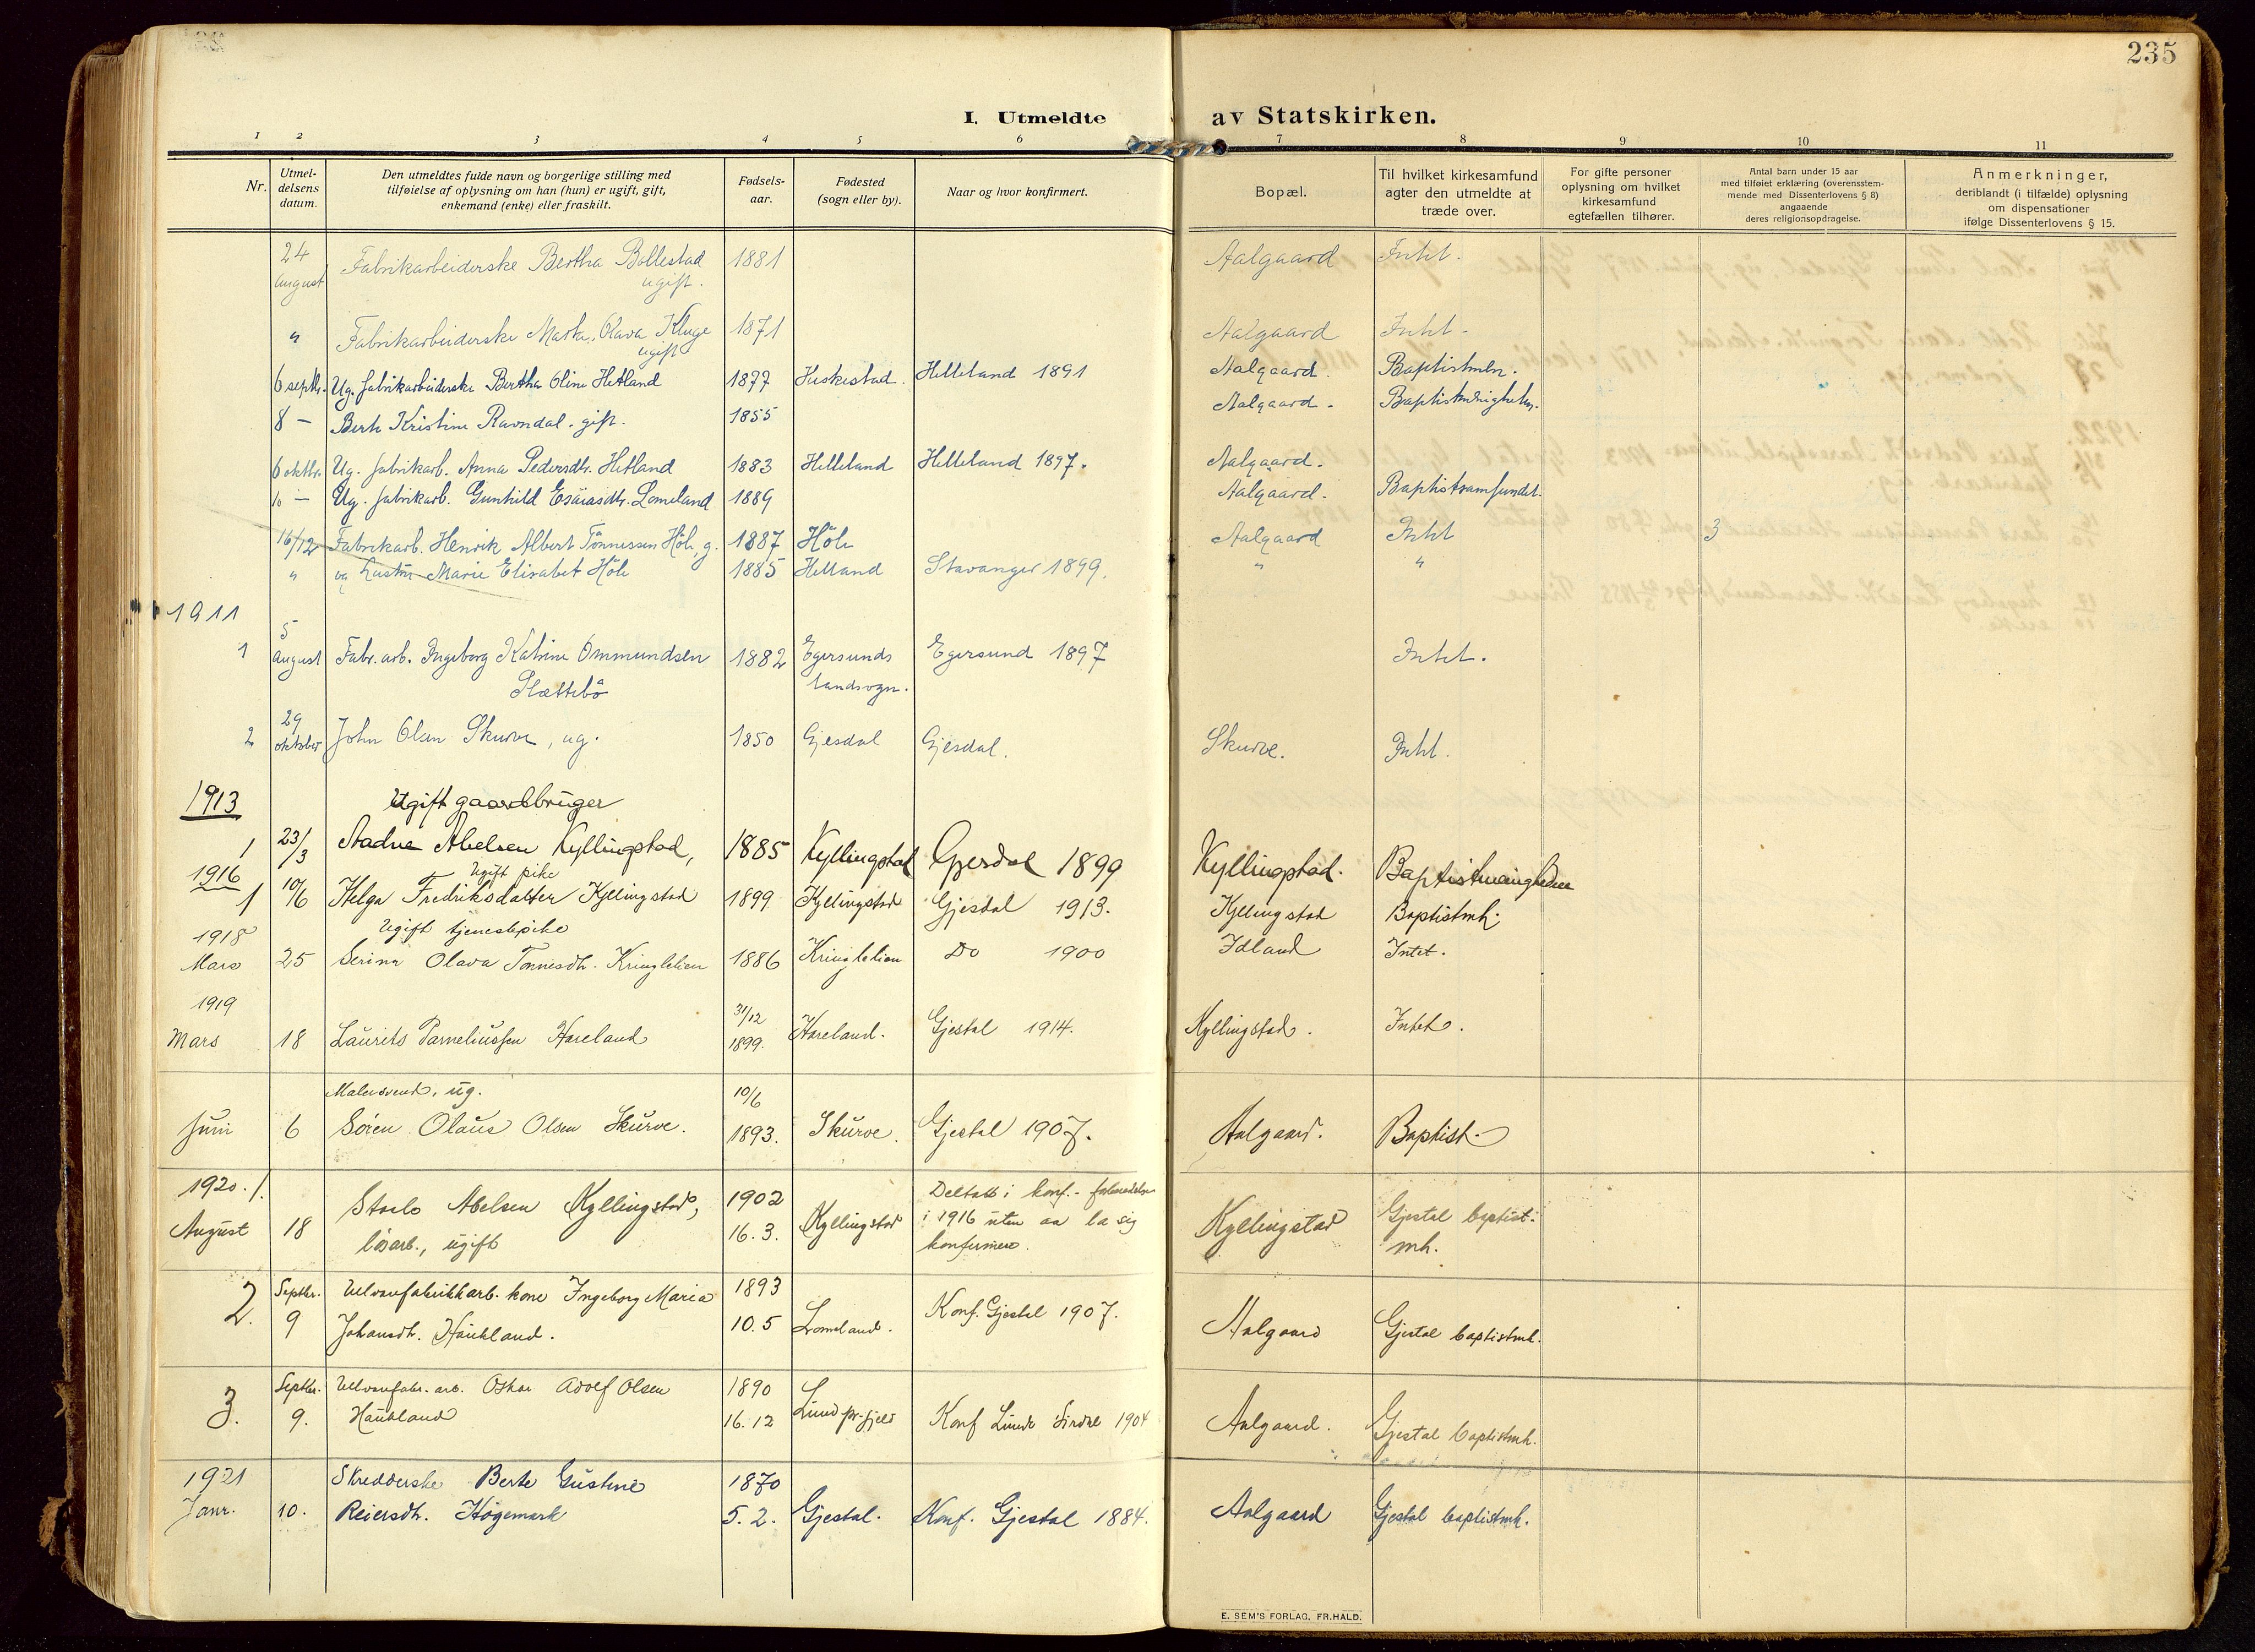 235
I. Utmeldte av Statskirken.
1 2 3 4 5 6 7 8 9 10 11
Nr.
Utmel-
delsens
datum.
Den utmeldtes fulde navn og borgerlige stilling med
tilføielse af oplysning om han (hun) er ugift, gift,
enkemand (enke) eller fraskilt.
Fødsels-
aar.
Fødested
(sogn eller by).
Naar og hvor konfirmert.
Bopæl.
Til hvilket kirkesamfund
agter den utmeldte at
træde over.
For gifte personer
oplysning om hvilket
kirkesamfund
egtefællen tilhører.
Antal barn under 15 aar
med tilføiet erklæring (overensstem-
mende med Dissenterlovens § 8)
angaaende
deres religionsopdragelse.
Anmerkninger,
deriblandt (i tilfælde) oplysning
om dispensationer
ifølge Dissenterlovens § 15.
24 Fabrikarbeiderske Bertha Bollestad 1881 Aalgaard Intet.
august ugift.
" Fabrikarbeiderske Marta Olava Kluge 1871 Aalgaard Intet.
ugift
6 septbr. Ug. fabrikarbeiderske Bertha Oline Hetland 1877 Heskestad. Helleland 1891 Aalgaard. Baptistmen.
8 — Berte Kristine Ravndal. gift. 1855 Aalgaard. Baptistmenigheten.
6 oktbr. Ug. fabrikarb. Anna Pedersdtr. Hetland 1883 Helleland Helleland 1897. Aalgaard.
10 — Ug. fabrikarb. Gunhild Esaiasdtr. Lomeland 1889 Aalgaard. Baptistsamfundet.
16/12 Fabrikarb. Henrik Albert Tönnessen Höle, g. 1887 Höle Aalgaard Intet 3
" og hustru Marie Elisabet Höle 1885 Hetland Stavanger 1899. " "
1911
5
1 august Fabr. arb. Ingeborg Katrine Ommundsen 1882 Egersunds Egersund 1897 Intet.
Slættebö landsogn.
29
2 oktober John Olsen Skurve, ug. 1850 Gjesdal Gjesdal. Skurve. Intet.
1913 Ugift gaardbruger
1 23/3 Aadne Abelsen Kyllingstad, 1885 Kyllingstad Gjesdal 1899 Kyllingstad. Baptistmenigheden
1916 Ugift pike
1 10/6 Helga Fredriksdatter Kyllingstad 1899 Kyllingstad Gjesdal 1913. Kyllingstad Baptistmh.
1918 Ugift tjenestepike
Mars 25 Serina Olava Tönnesdtr. Kringlelien 1886 Kringlelien Do 1900 Idland Intet.
1919 31/12
Mars 18 Laurits Parneliussen Hareland 1899. Hareland. Gjesdal 1914. Kyllingstad. Intet.
Malersvend, ug. 10/6
Juni 6 Sören Olaus Olsen Skurve. 1893. Skurve. Gjesdal 1907. Aalgaard. Baptist.
1920. 1. 1902 Deltatt i konf.- forberedelsen
August 18 Abelsen Kyllingstad, 16.3. Kyllingstad i 1916 uten aa la sig Kyllingstad Gjesdal baptist-
lösarb., ugift konfirmere. mh.
2. Septbr. Uldvarefabrikkarb. kone Ingeborg Maria 1893
9 Johansdtr. Haukland. 10.5 Lomeland. Konf. Gjesdal 1907. Aalgaard Gjesdal baptistmh.
3. Septbr. Uldvarefabr. arb. Oskar Adolf Olsen 1890
9. Haukland 16.12 Lund pr.gjeld Konf Lunde Sirdal 1904 Aalgaard. Gjesdal baptistmh.
1921 Skredderske Berte Gustine 1870
Janr. 10. Reiersdtr. Högemark 5.2. Gjesdal. Konf. Gjesdal 1884. Aalgaard Gjesdal baptistmh.
E. SEM'S FORLAG, FR.HALD.